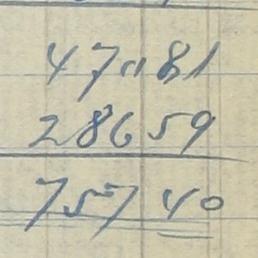 47081
28659
75740